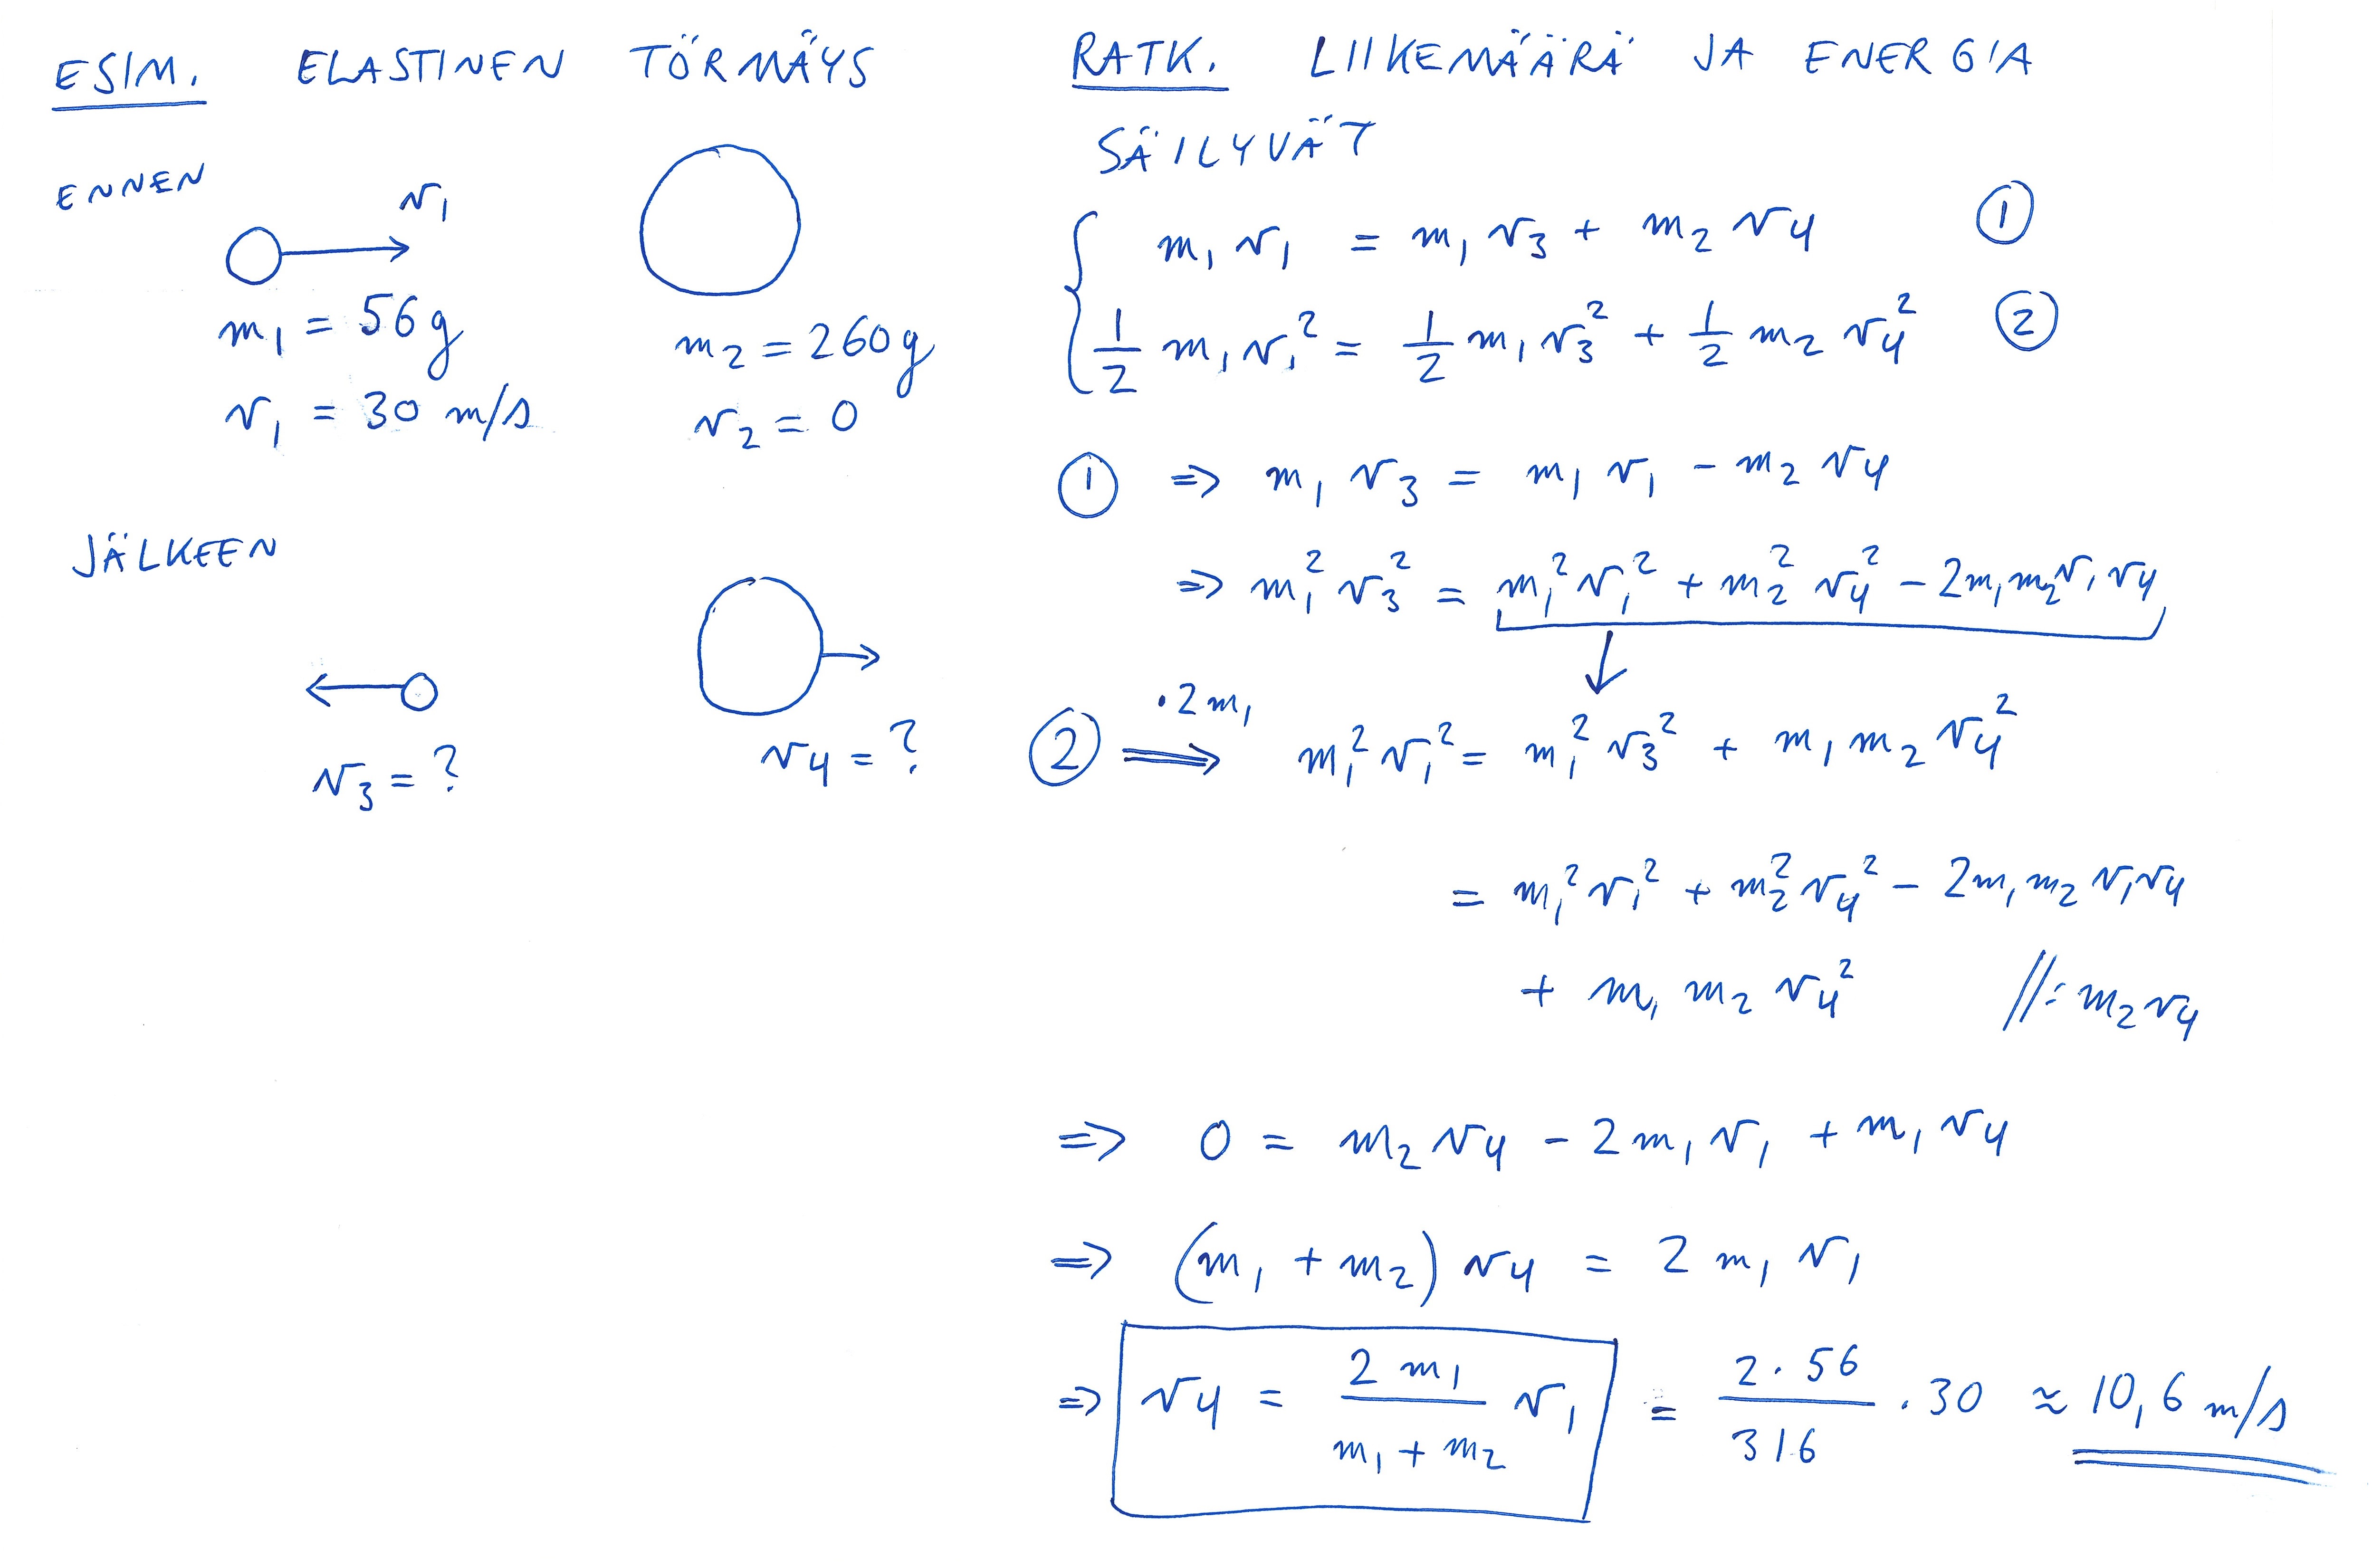 ESIM. ELASTINEN TÖRMÄYS
ENNEN
v₁
m₁ = 56 g
v₁ = 30 m/s
m₂ = 260 g
v₂ = 0
JÄLKEEN
v₃ = ?
v₄ = ?
RATK. LIIKEMÄÄRÄ JA ENERGIA
SÄILYVÄT
m₁ v₁ = m₁ v₃ + m₂ v₄ ①
1/2 m₁ v₁² = 1/2 m₁ v₃² + 1/2 m₂ v₄² ②
① ⇒ m₁ v₃ = m₁ v₁ - m₂ v₄
⇒ m₁² v₃² = m₁² v₁² + m₂² v₄² - 2m₁m₂v₁v₄
② ·2m₁ ⇒ m₁² v₁² = m₁² v₃² + m₁ m₂ v₄²
= m₁² v₁² + m₂² v₄² - 2m₁ m₂ v₁v₄
+ m₁ m₂ v₄² //: m₂v₄
⇒ 0 = m₂ v₄ - 2m₁ v₁ + m₁ v₄
⇒ (m₁ + m₂) v₄ = 2 m₁ v₁
⇒ v₄ = 2 m₁ / (m₁ + m₂) v₁ = 2·56 / 316 · 30 ≈ 10,6 m/s